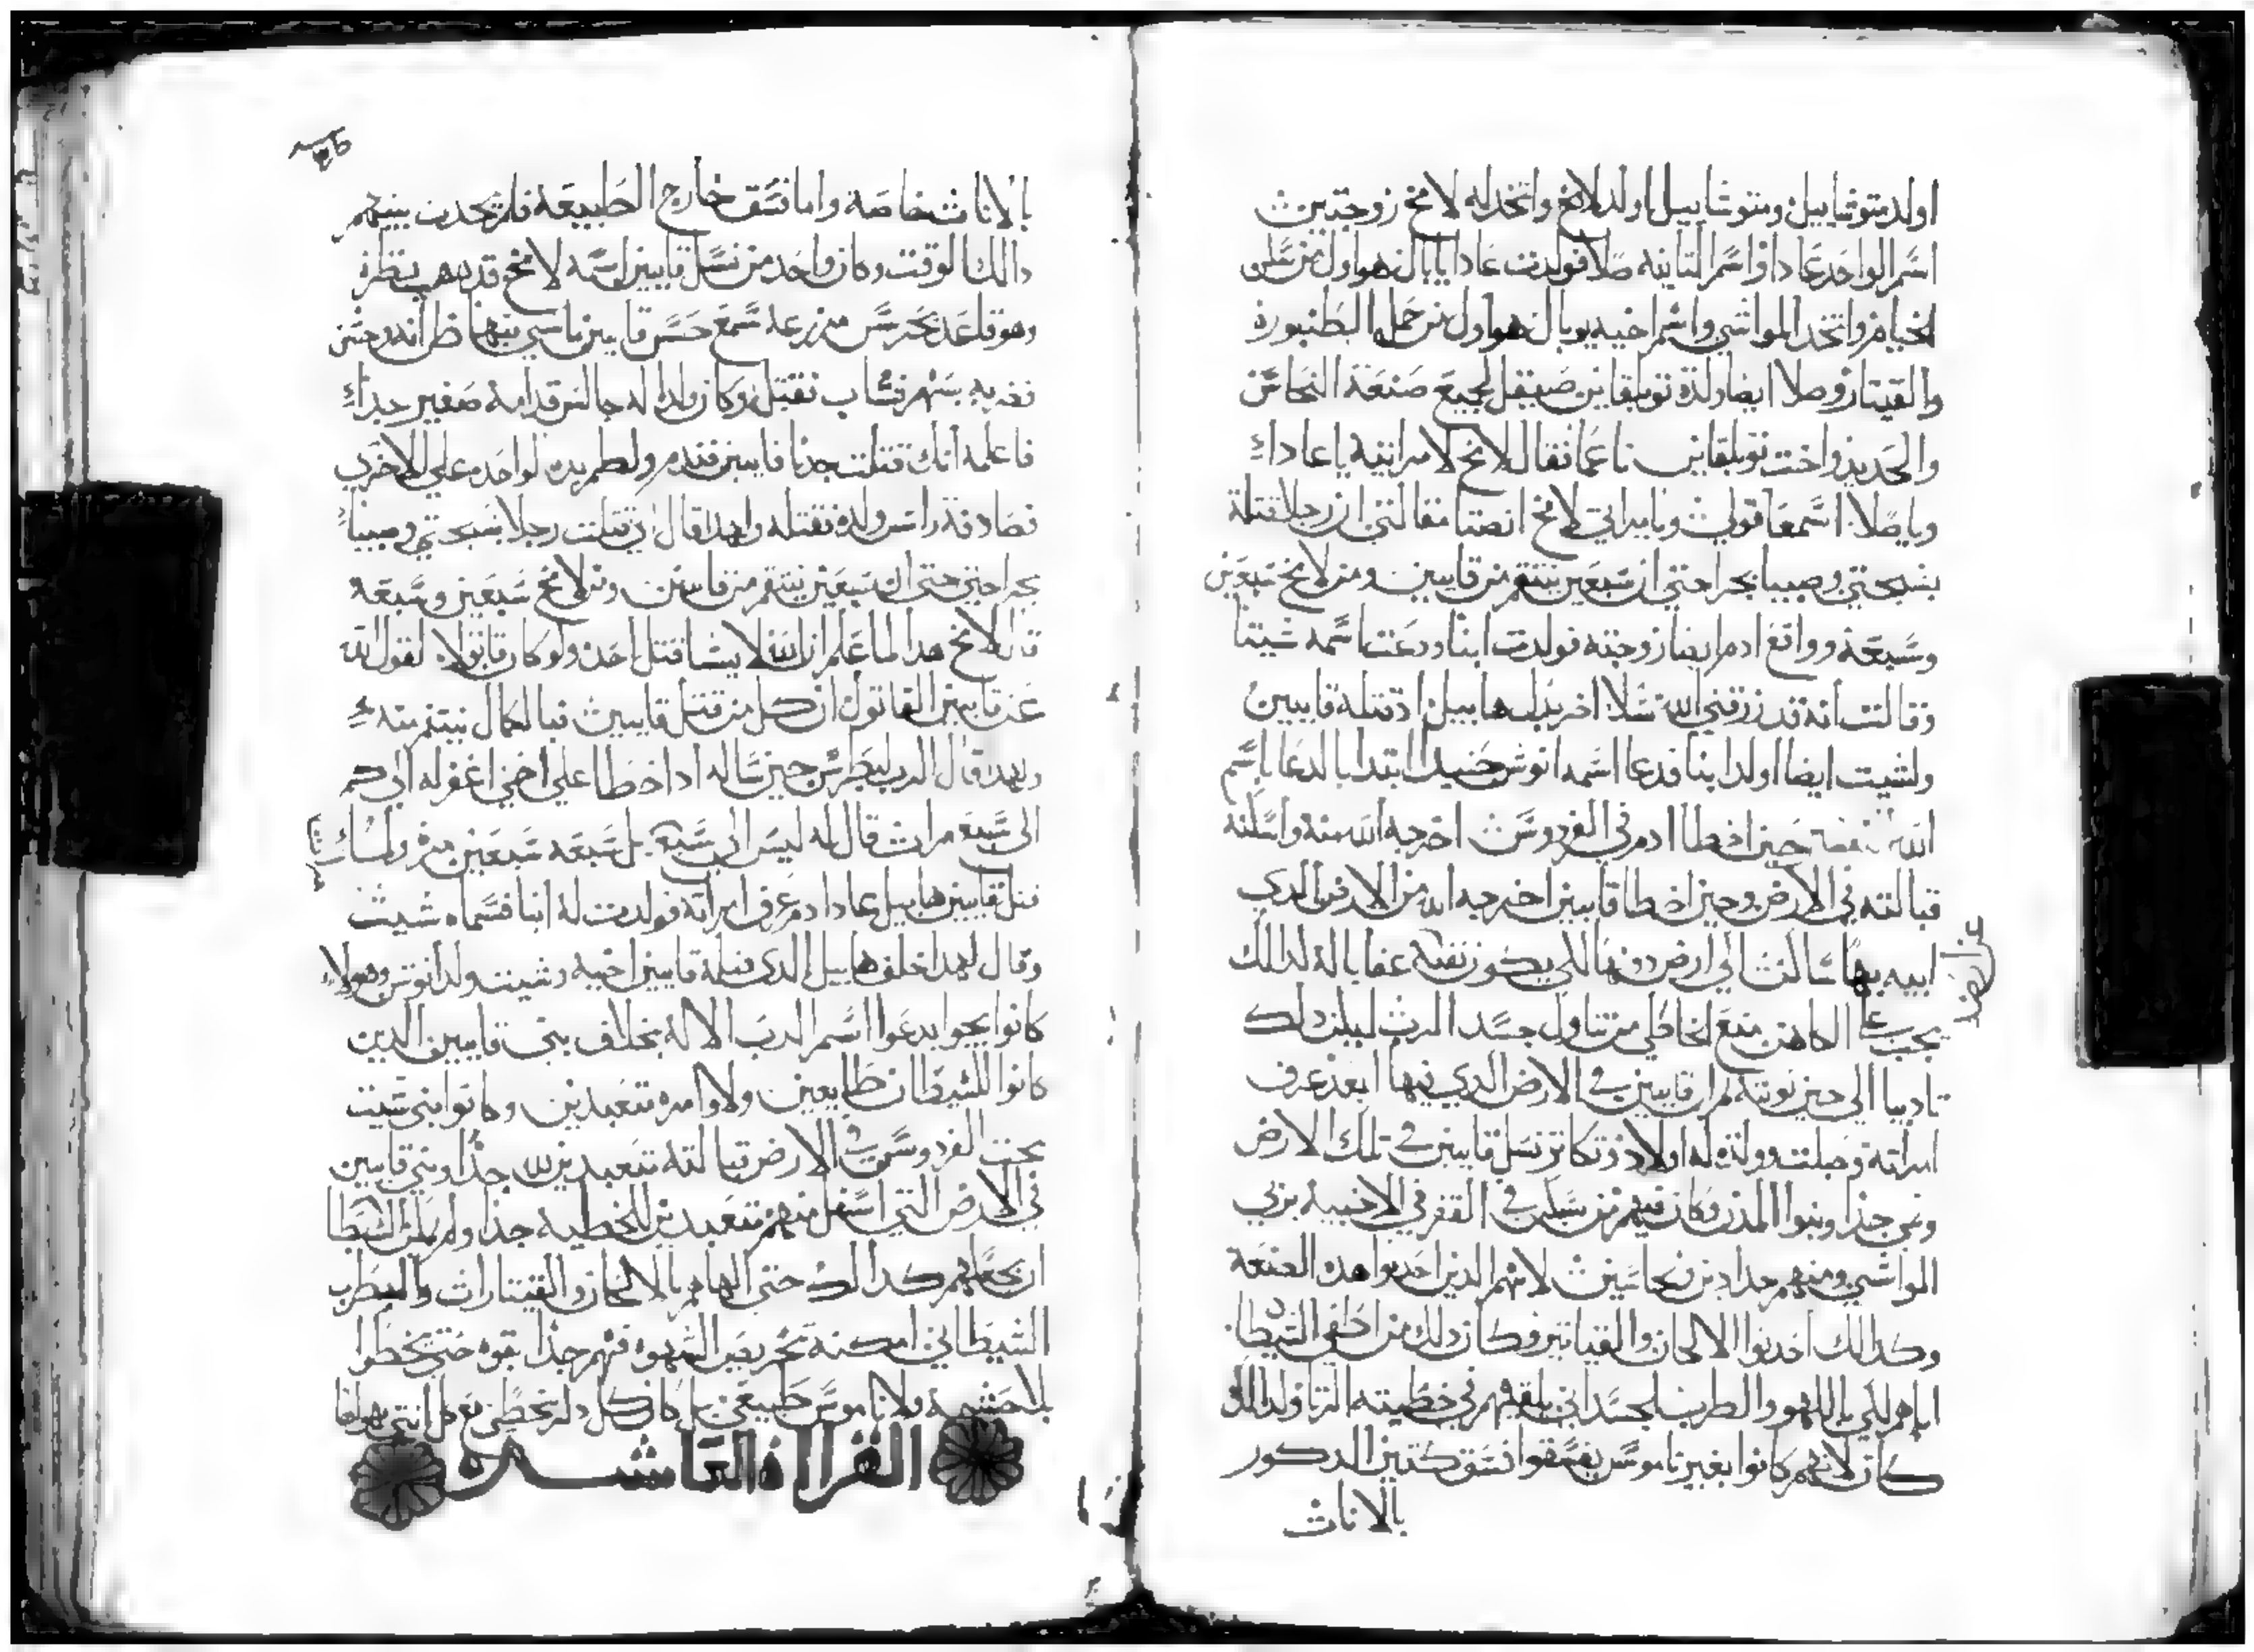 اولد متوشاييل ومتوشاييل اولد لامخ واتخد له لامخ زوجتين
اسم الواحد عادا واسم التانيه صلا فولدت عادا يابال هو اول من سكن
الخيام واتخد المواشي واسم اخيه يوبال هو اول من حمل الطنبورة
والقيتار وصلا ايضا ولدة توبلقاين صيقل لجميع صنعة النحاس
والحديد واخت توبلقاين ناعما فقال لامخ لامراتيه يا عادا
ويا صلا اسمعا قولي ويا مراتي لامخ انصتا مقالتي ان رجلا قتلة
بشجتي وصبيا بجراحتي ان سبعين ينتقم من قايين ومن لامخ سبعين
وسبعة وواقع ادم ايضا زوجته فولدت ابنا ودعت اسمه شيتا
وقالت انه قد رزقني الله نسلا اخر بدل هابيل اد قتلة قايين
ولشيت ايضا اولد ابنا فدعا اسمه انوش حنيدا ابتدا بالدعا باسم
الله حين اخطا ادم في الفردوس اخرجه الله منه واسكنه
قبالته في الارض وحين اخطا قايين اخرجه الله من الارض الدي
ابيه بها ساكن الي ارض دونها لكي يكون نفيه عقابا له لدالك
يجب علي الكاهن منع الخاطي من تناول جسد الرب ليكن دلك
تاديبا الي حين توبته ثم ان قايين في الارض الدي فيها ابعد عرف
امراته وحبلت وولدة له اولاد وتكاتر نسل قايين في تلك الارض
ونمي جدا وبنوا المدن وكان فيهم من يسكن في القفر في الاخبية يربي
المواشي ومنهم حدادين ونحاسين لانهم الدين احدتوا هده الصنعة
وكدالك احدتوا الالحان والقياتير وكان دلك من الشيطان
الهاهم لكي باللهو والطرب الجسداني يلقيهم في خطيته الزنا ولدالك
كان لانهم كانوا بغير ناموس يفسقوا فسق كتير الدكور
بالاناث
بالاناث خاصة واما فسق خارج الطبيعة فلم يحدت بينهم
دالك الوقت وكان واحد من نسل قايين اسمه لامخ قد دهب نظرة
وهو قاعد يحرس مزرعة سمع حس قايين ماشي فيها ظن انه وحش
فضربه بسهم نشاب فقتله وكان ولدا له جالس قدامه صغير جدا
فاعلمه انك قتلت جدنا قايين فندم ولطم يده الواحده علي الاخري
فصادفة راس ولده فقتله ولهدا قال اني قتلت رجلا بشجتي وصبيا
بجراحتي حتي ان سبعين ينتقم من قايين ومن لامخ سبعين وسبعة
قال لامخ هدا لما علم ان الله لا يشا قتل احد ولو كان قاتولا لقول الله
عن قايين القاتول ان كل من قتل قايين فبالكمال ينتقم منه
ولهدا قال الرب لبطرس حين ساله ادا اخطا علي اخي اغفر له الي كم
الي سبع مرات قال له ليس الي سبع بل سبعه سبعين مره ولما
قتل قايين هابيل عاد ادم عرف امراته فولدت له ابنا فسماه شيث
وقال لهدا خلف هابيل الدي قتله قايين اخيه وشيت ولد انوش وهولاء
كانوا يدعوا اسم الرب الاله بخلاف بني قايين الدين
كانوا للشيطان طايعين ولاوامره متعبدين وكانوا بني شيت
تحت الفردوس في الارض قبالته متعبدين لله جدا وبني قايين
في الارض التي اسفل منهم متعبدين للخطية جدا ولم يمكن الشيطان
ان يجعلهم كدالك حتي الهاهم بالالحان والقيتارات والطرب
الشيطاني امكنه تحريض الشهوه فيهم جدا بقوه حتي يخطوا
بلا حشمة ولا ناموس طبيعي بل كان كل دكر يخطي مع كل انتي يهواها
القراءة العاشرة